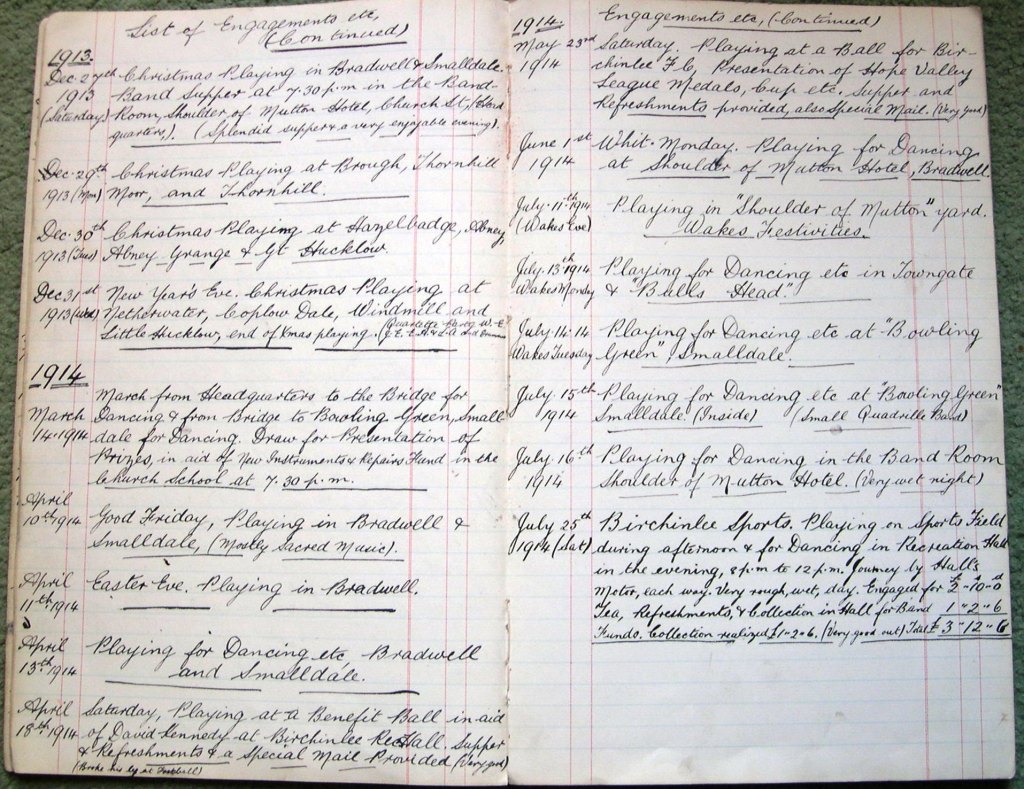 List of Engagements etc,
(Continued)
1913.
Dec. 27th Christmas Playing in Bradwell & Smalldale.
1913 Band Supper at 7.30 p.m in the Band-
(Saturday) Room, Shoulder of Mutton Hotel, Church St, (Head
quarters,). (Splendid supper & a very enjoyable evening).
Dec. 29th Christmas Playing at Brough, Thornhill
1913 (Mon) Moor, and Thornhill.
Dec. 30th Christmas Playing at Hazelbadge, Abney,
1913 (Tues) Abney Grange & Gt Hucklow.
Dec 31st New Year's Eve. Christmas Playing at
1913 (Wed) Netherwater, Coplow Dale, Windmill and
Little Hucklow, end of Xmas playing. (Quartette Party W. E.
J. E. E. A. &
1914
March from Headquarters to the Bridge for
March Dancing & from Bridge to Bowling Green, Small
14. 1914 dale for Dancing. Draw for Presentation of
Prizes, in aid of New Instruments & Repairs Fund in the
Church School at 7.30 p.m.
April
10th 1914 Good Friday, Playing in Bradwell &
Smalldale, (Mostly Sacred Music).
April Easter Eve. Playing in Bradwell.
11th 1914
April Playing for Dancing etc, Bradwell
13th 1914 and Smalldale.
April Saturday, Playing at a Benefit Ball in aid
18th 1914 of David Kennedy at Birchinlee Rec Hall. Supper
& Refreshments & a Special Mail Provided (Very good)
(Broke his leg at Football)
1914. Engagements etc, (Continued)
May 23rd Saturday. Playing at a Ball for Bir-
1914 chinlee F.C, Presentation of Hope Valley
League Medals, Cup etc. Supper and
Refreshments provided, also Special Mail. (Very good)
June 1st Whit-Monday. Playing for Dancing
1914 at Shoulder of Mutton Hotel, Bradwell.
July. 11th 1914 Playing in "Shoulder of Mutton" yard.
(Wakes Eve) Wakes Festivities.
July. 13th 1914 Playing for Dancing etc in Towngate
Wakes Monday & "Bulls Head".
July 14. 14 Playing for Dancing etc at "Bowling
Wakes Tuesday Green", Smalldale.
July 15th Playing for Dancing etc at "Bowling Green"
1914 Smalldale (Inside) (Small Quadrille Band)
July. 16th Playing for Dancing in the Band Room
1914 Shoulder of Mutton Hotel. (Very wet night)
July 25th Birchinlee Sports. Playing on Sports Field
1914 (Sat) during afternoon & for Dancing in Recreation Hall
in the evening, 8 p.m to 12 p.m. Journey by Hall's
Motor, each way. Very rough, wet, day. Engaged for £2-10s-0d
Tea, Refreshments, & Collection in Hall for Band 1 " 2 " 6
Funds. Collection realized £1-2-6. (Very good out) Total £3 " 12 " 6